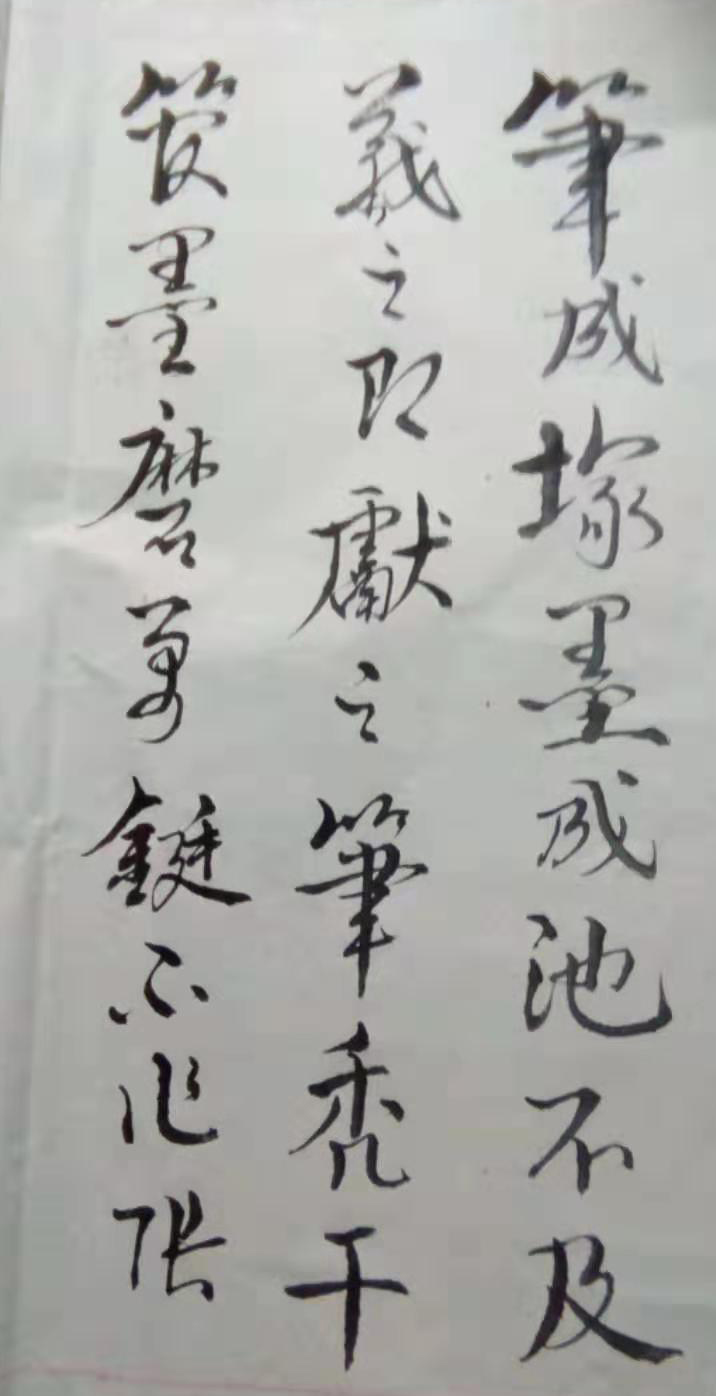 筆成塚墨成池不及
羲之即獻之筆禿千
管墨磨萬鋌不作張